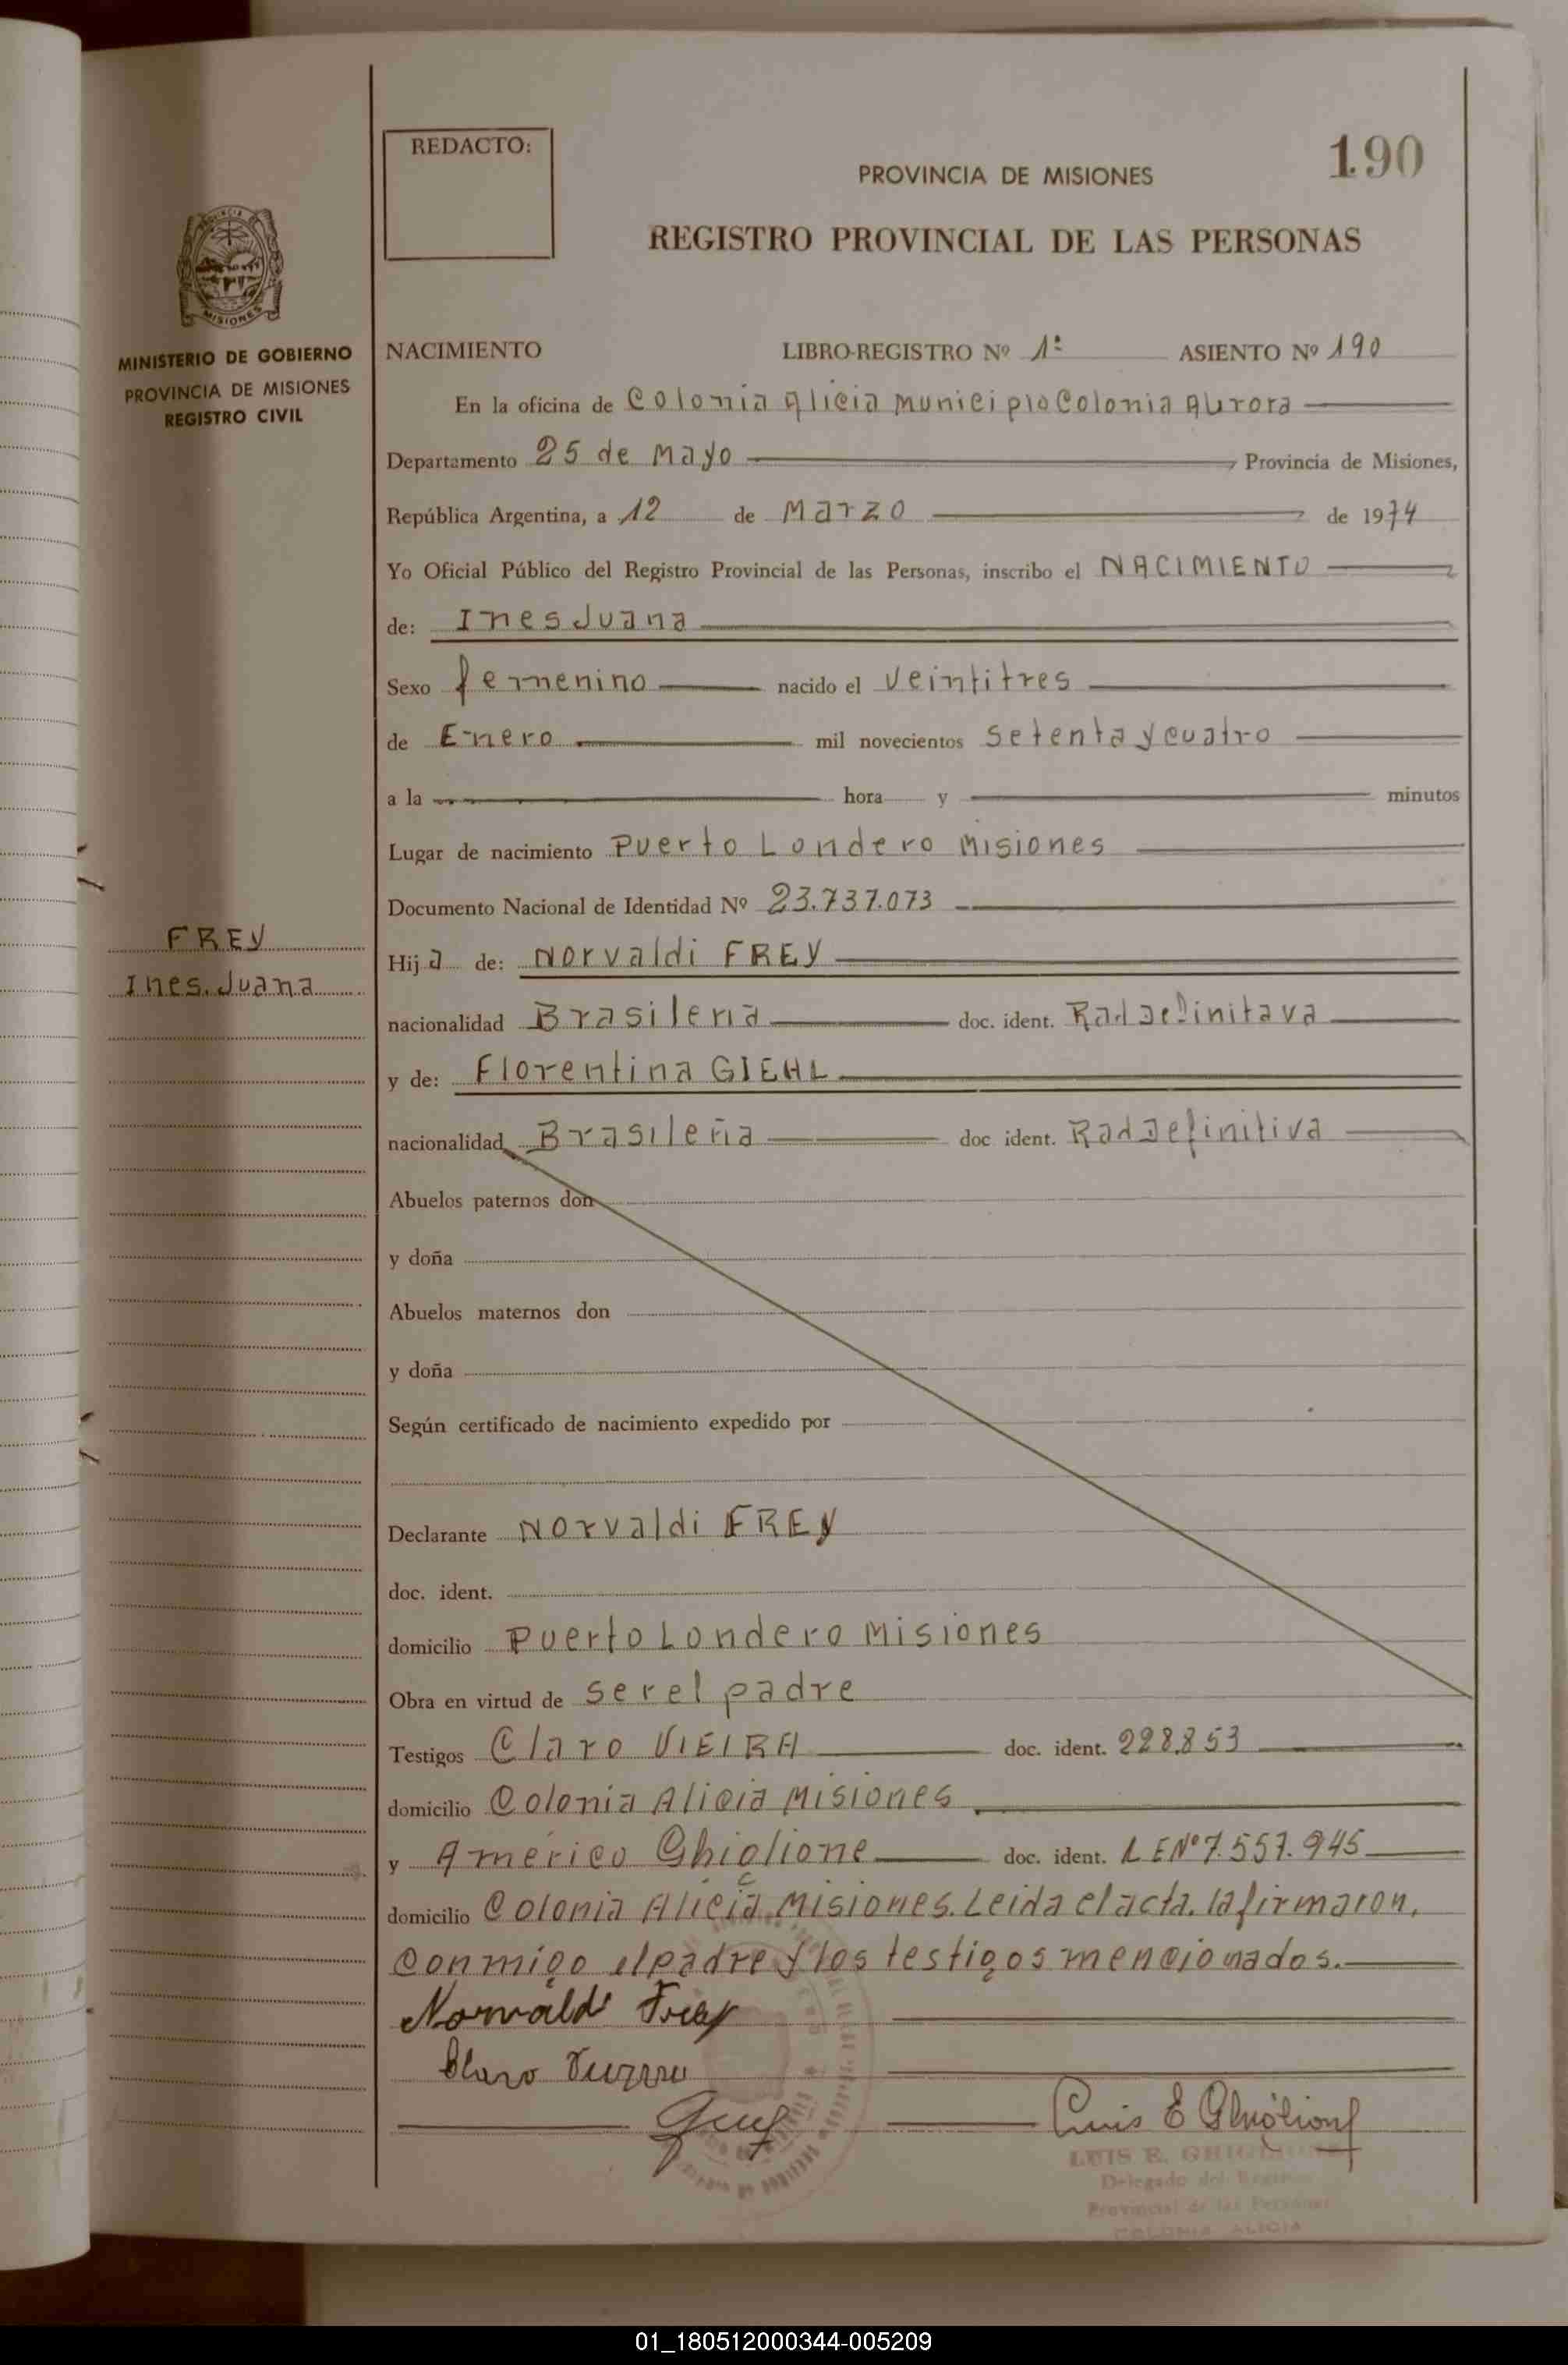 REDACTO:
190
PROVINCIA DE MISIONES
REGISTRO PROVINCIAL DE LAS PERSONAS
MISIONES
MINISTERIO DE GOBIERNO
PROVINCIA DE MISIONES
REGISTRO CIVIL
NACIMIENTO LIBRO-REGISTRO Nº 1º ASIENTO Nº 190
En la oficina de Colonia Alicia Municipio Colonia Aurora
Departamento 25 de Mayo, Provincia de Misiones,
República Argentina, a 12 de Marzo de 1974
Yo Oficial Público del Registro Provincial de las Personas, inscribo el NACIMIENTO
de: Ines Juana
Sexo femenino nacido el veintitres
de Enero mil novecientos setenta y cuatro
a la hora y minutos
Lugar de nacimiento Puerto Londero Misiones
Documento Nacional de Identidad Nº 23.737.073
FREY
Ines Juana
Hija de: Norvaldi FREY
nacionalidad Brasileña doc. ident. Rad Definitava
y de: Florentina GIEHL
nacionalidad Brasileña doc ident. Rad Definitiva
Abuelos paternos don
y doña
Abuelos maternos don
y doña
Según certificado de nacimiento expedido por
Declarante Norvaldi FREY
doc. ident.
domicilio Puerto Londero Misiones
Obra en virtud de ser el padre
Testigos Claro VIEIRA doc. ident. 228.853
domicilio Colonia Alicia Misiones
y Américo Ghiglione doc. ident. L E Nº 7.557.945
domicilio Colonia Alicia Misiones. Leida el acta. la firmaron,
conmigo el padre y los testigos mencionados.
Norwaldi Frey
Claro
Luis E Ghiglione
LUIS E. GHIGLIONE
Delegado del Registro
Provincial de las Personas
COLONIA ALICIA
01_180512000344-005209